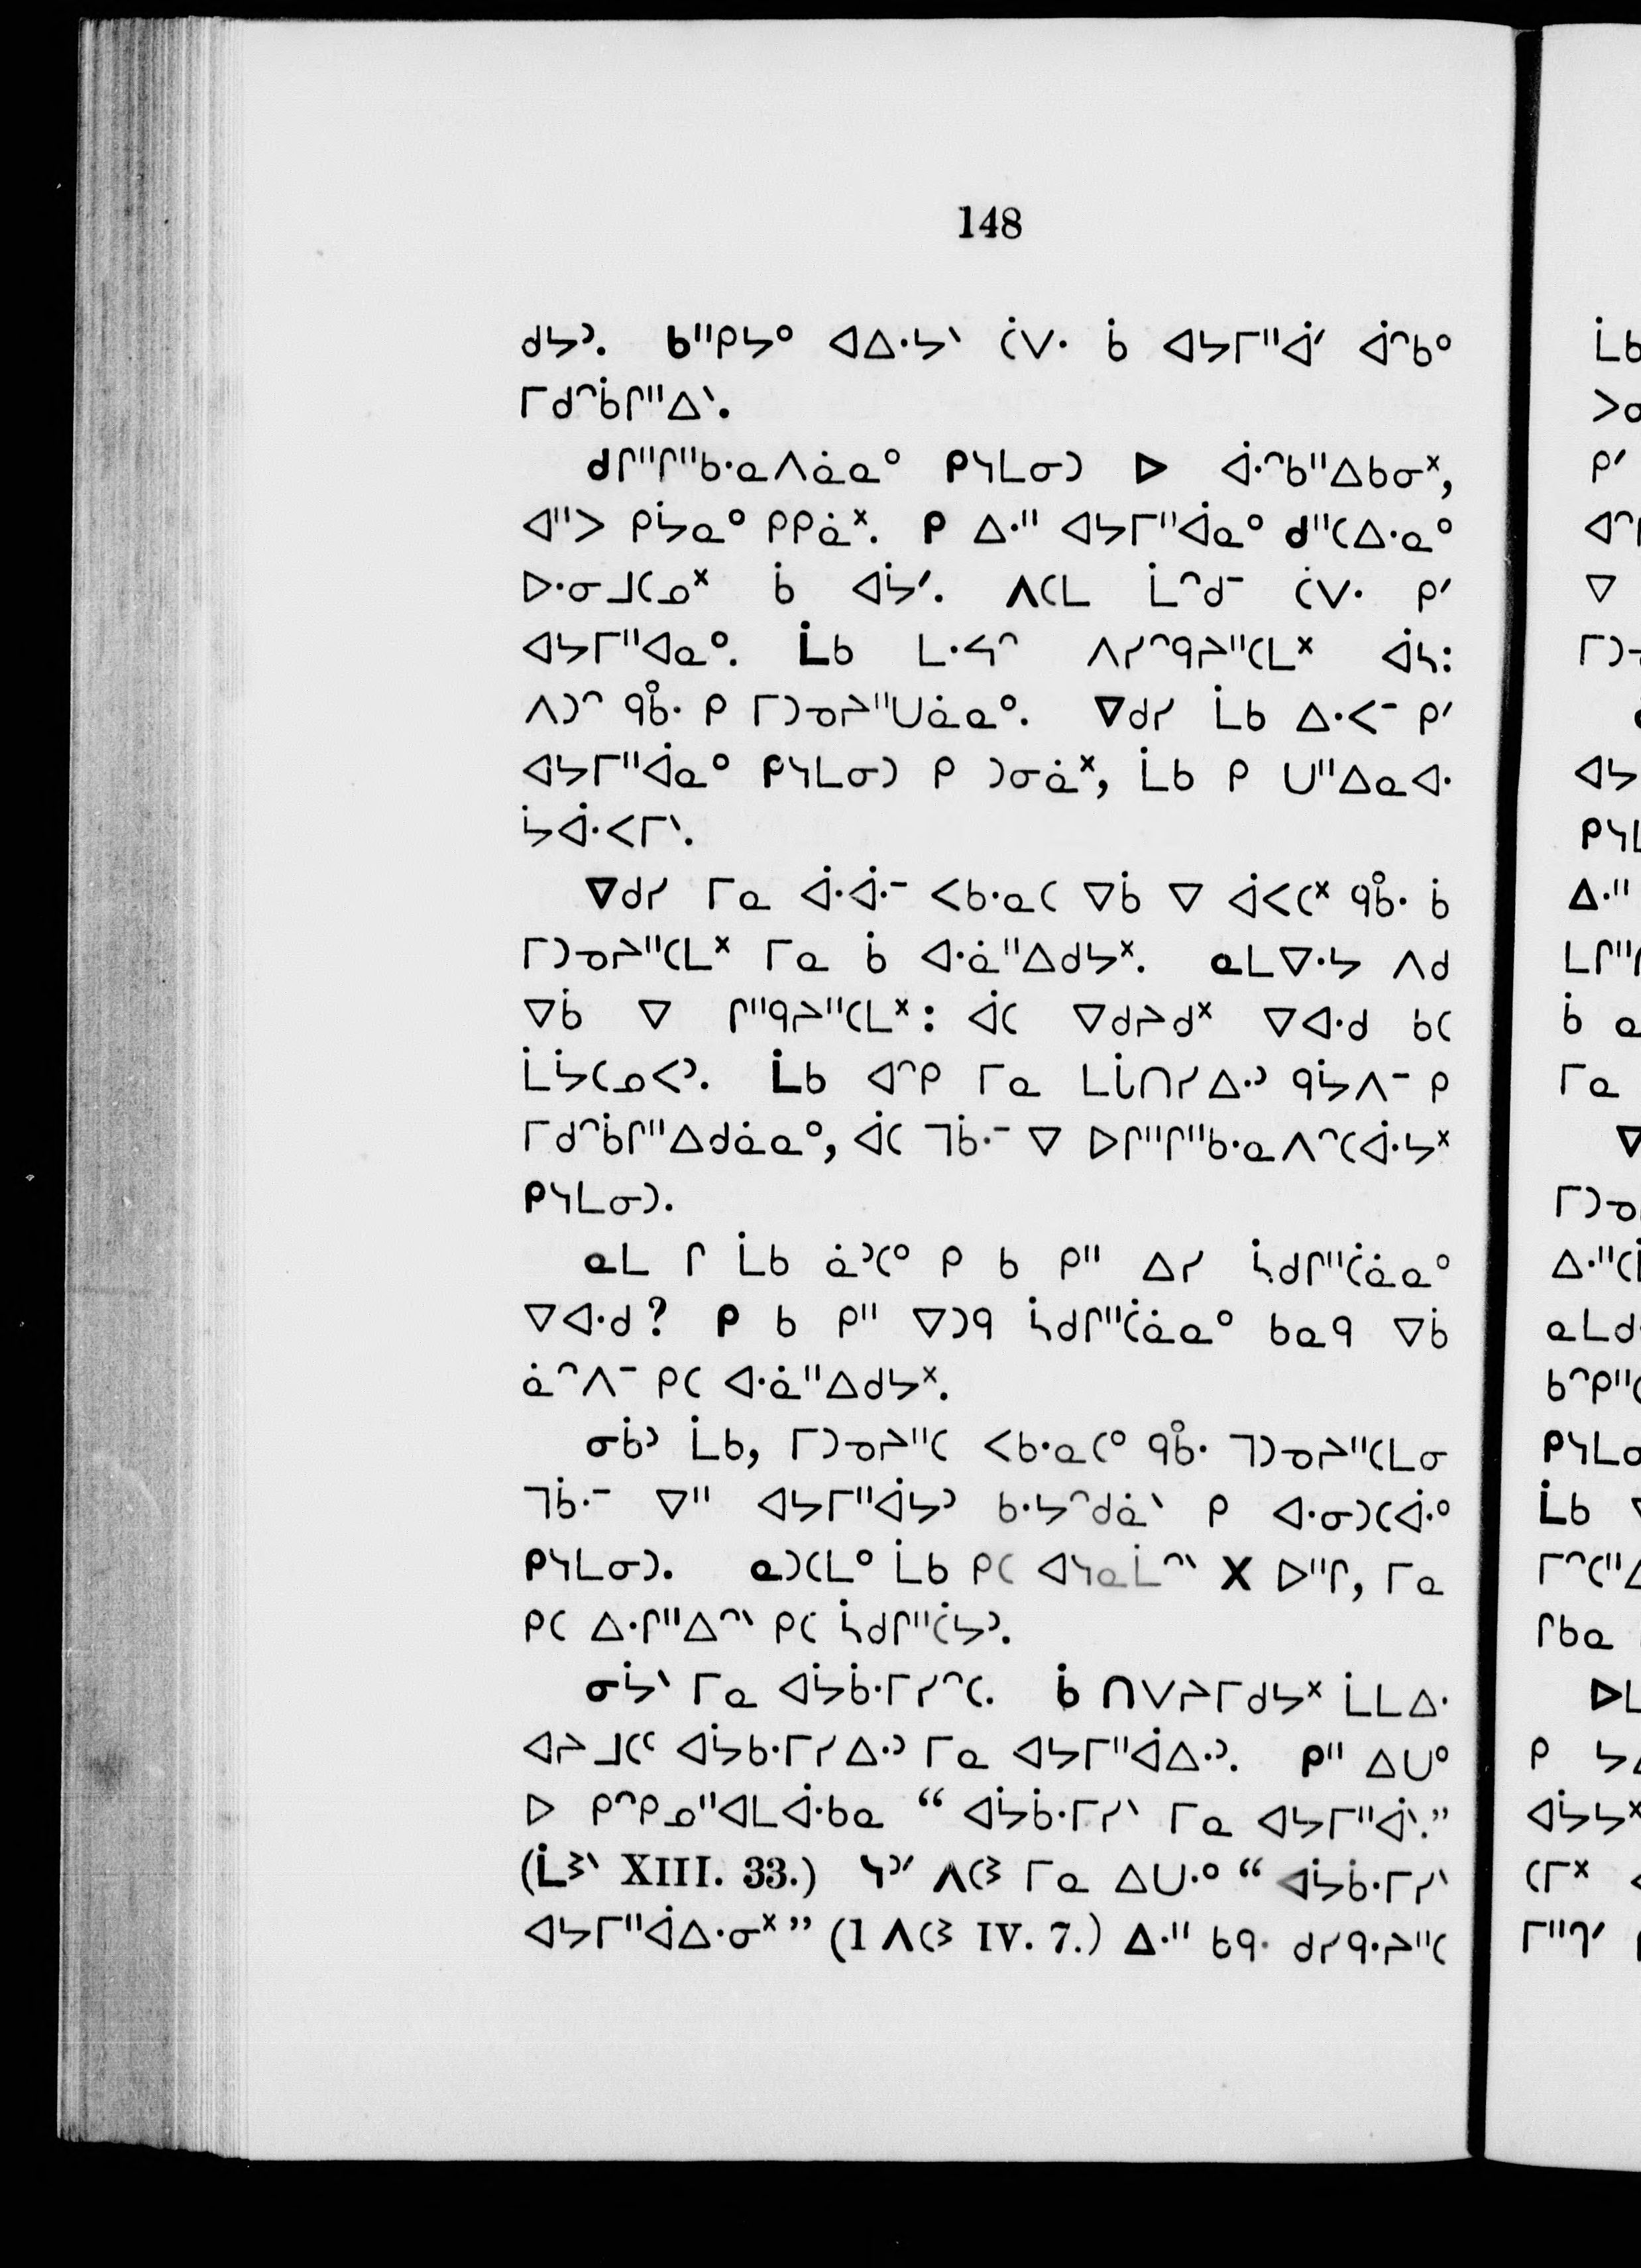 148
ᑯᔭᐣ. ᑲᐦᑭᔭᐤ ᐊᐃᐧᔭᐠ ᑖᐯᐧ ᑳ ᐊᔭᒥᐦᐋᐟ ᐋᐢᑲᐤ
ᒥᑯᐢᑳᒋᐦᐃᐠ.
ᑯᒋᐦᒋᐦᑲᐧᓇᐱᓈᓇᐤ ᑭᓴᒪᓂᑐ ᐅ ᐋᐧᐢᑲᐦᐃᑲᓂᕽ,
ᐊᐦᐳ ᑭᔮᓇᐤ ᑭᑭᓈᕽ. ᑭ ᐃᐧᐦ ᐊᔭᒥᐦᐋᓇᐤ ᑯᐦᑕᐃᐧᓇᐤ
ᐅᐧᓂᒧᑕᓄᕽ ᑳ ᐊᔮᐟ. ᐱᑕᒪ ᒫᐢᑯᐨ ᑖᐯᐧ ᑭᐟ
ᐊᔭᒥᐦᐊᓇᐤ. ᒫᑲ ᒪᐧᔦᐢ ᐱᓯᐢᑫᔨᐦᑕᒪᕽ ᐋᓴ:
ᐱᑐᐢ ᑫᑾᐧ ᑭ ᒥᑐᓀᔨᐦᑌᓈᓇᐤ. ᐁᑯᓯ ᒫᑲ ᐃᐧᐸᐨ ᑭᐟ
ᐊᔭᒥᐦᐋᓇᐤ ᑭᓴᒪᓂᑐ ᑭ ᑐᓂᓈᕽ, ᒫᑲ ᑭ ᑌᐦᐃᓇᐊᐧ
ᔮᐋᐧᐸᒥᐠ.
ᐁᑯᓯ ᒥᓇ ᐋᐧᐋᐧᐨ ᐸᑲᐧᓇᑕ ᐁᑳ ᐁ ᐋᐸᑕᕽ ᑫᑾᐧ ᑳ
ᒥᑐᓀᔨᐦᑕᒪᕽ ᒥᓇ ᑳ ᐊᐧᓈᐦᐃᑯᔭᕽ. ᓇᒪᐁᐧᔭ ᐱᑯ
ᐁᑳ ᐁ ᒋᐦᑫᔨᐦᑕᒪᕽ: ᐋᑕ ᐁᑯᔨᑯᕽ ᐁᐊᐧᑯ ᑲᑕ
ᒫᔮᑕᓄᐸᐣ. ᒫᑲ ᐊᐢᑭ ᒥᓇ ᒪᒑᑎᓯᐃᐧᐣ ᑫᔮᐱᐨ ᑭ
ᒥᑯᐢᑳᒋᐦᐃᑯᓈᓇᐤ, ᐋᑕ ᒣᑳᐧᐨ ᐁ ᐅᒋᐦᒋᐦᑲᐧᓇᐱᐢᑕᐋᐧᔭᕽ
ᑭᓴᒪᓂᑐ.
ᓇᒪ ᒋ ᒫᑲ ᓈᐣᑕᐤ ᑭ ᑲ ᑭᐦ ᐃᓯ ᓵᑯᒋᐦᑖᓈᓇᐤ
ᐁᐊᐧᑯ? ᑭ ᑲ ᑭᐦ ᐁᑐᑫ ᓵᑯᒋᐦᑖᓈᓇᐤ ᑲᓇᑫ ᐁᑳ
ᓈᐢᐱᐨ ᑭᑕ ᐊᐧᓈᐦᐃᑯᔭᕽ.
ᓂᑳᐣ ᒫᑲ, ᒥᑐᓀᔨᐦᑕ ᐸᑲᐧᓇᑕᐤ ᑫᑾᐧ ᒣᑐᓀᔨᐦᑕᒪᓂ
ᒣᑳᐧᐨ ᐁᐦ ᐊᔭᒥᐦᐋᔭᐣ ᑲᐧᔭᐢᑯᓈᐠ ᑭ ᐊᐧᓂᑐᑕᐋᐧᐤ
ᑭᓴᒪᓂᑐ. ᓇᑐᑕᒪᐤ ᒫᑲ ᑭᑕ ᐊᓴᓇᒫᐢᐠ X ᐅᐦᒋ, ᒥᓇ
ᑭᑕ ᐃᐧᒋᐦᐃᐢᐠ ᑭᑕ ᓵᑯᒋᐦᑖᔭᐣ.
ᓂᔮᐠ ᒥᓇ ᐊᔮᑳᐧᒥᓯᐢᑕ. ᑳ ᑎᐯᔨᒥᑯᔭᕽ ᒫᒪᐃᐧ
ᐊᔨᒧᑕᒼ ᐊᔮᑲᐧᒥᓯᐃᐧᐣ ᒥᓇ ᐊᔭᒥᐦᐋᐃᐧᐣ. ᑭᐦ ᐃᑌᐤ
ᐅ ᑭᐢᑭᓄᐦᐊᒪᐋᐧᑲᓇ “ ᐊᔮᑳᐧᒥᓯᐠ ᒥᓇ ᐊᔭᒥᐦᐋᐠ.”
(ᒫᕒᐠ XIII. 33.) ᓴᐣᐟ ᐱᑕᕒ ᒥᓇ ᐃᑌᐧᐤ “ ᐊᔮᑳᐧᒥᓯᐠ
ᐊᔭᒥᐦᐋᐃᐧᓂᕽ ” (1 ᐱᑕᕒ IV. 7.) ᐃᐧᐦ ᑲᑫᐧ ᑯᓯᑫᐧᔨᐦᑕ